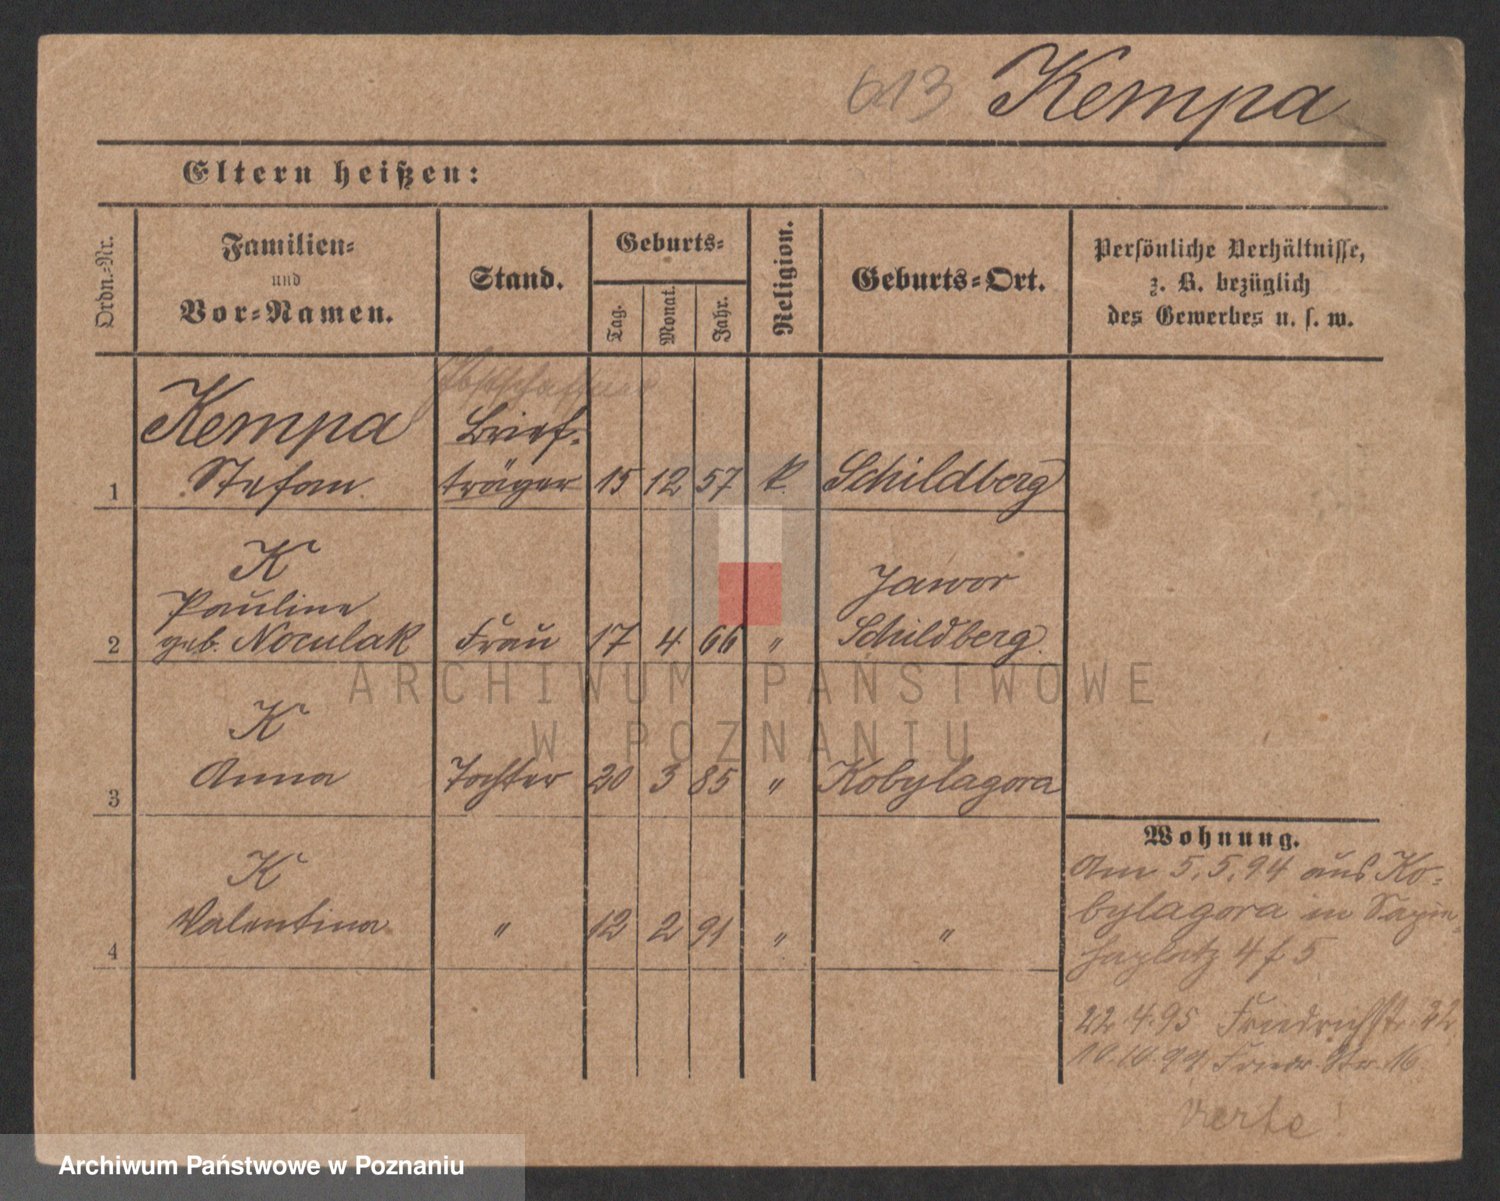 613 Kempa
Eltern heißen:
Ordn.=Nr.
Familien=
und
Vor=Namen.
Stand.
Geburts=
Tag.
Monat.
Jahr.
Religion.
Geburts=Ort.
Persönliche Verhältnisse,
z. B. bezüglich
des Gewerbes u. s. w.
Kempa Brief-
1 Stefan träger 15 12 57 k. Schildberg
K Jawor
Pauline
2 geb. Noculak Frau 17 4 66 " Schildberg.
K
3 Anna Tochter 20 3 85 " Kobylagora
K
4 Valentina " 12 2 91 " "
Wohnung.
Am 5.5.94 aus Ko=
bylagora in
4 f 5
22.4.95 Friedrichstr. 22
10.10.99 Friedr. Str. 16
verte!
ARCHIWUM PAŃSTWOWE
W POZNANIU
Archiwum Państwowe w Poznaniu